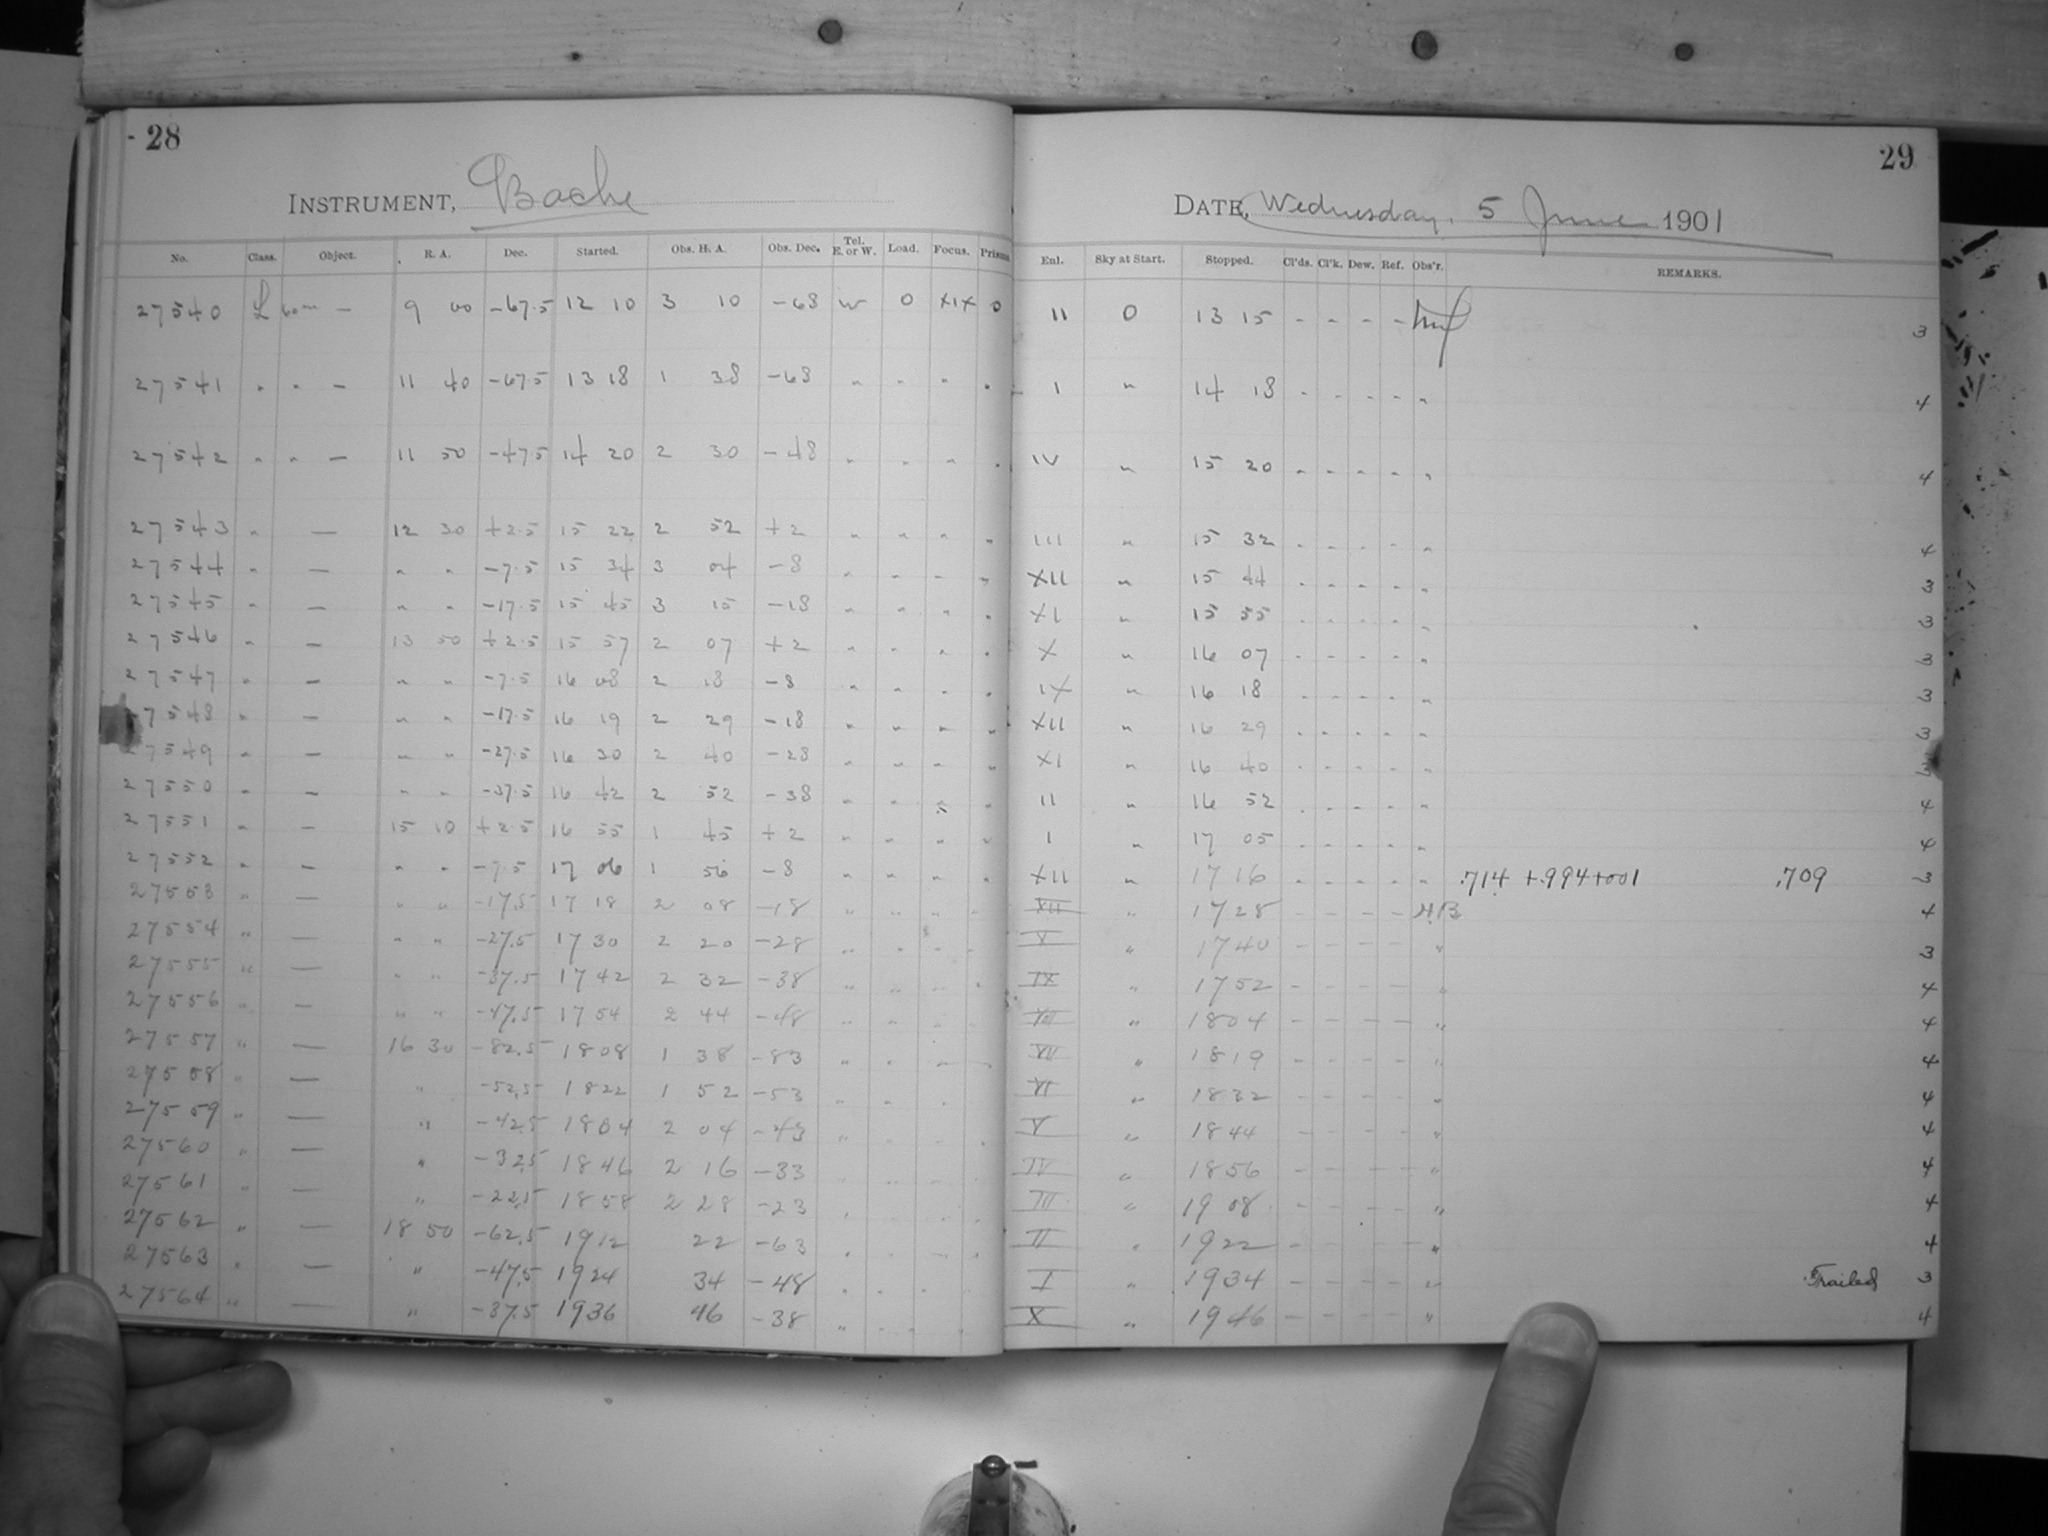 28
29
INSTRUMENT, Bache
DATE, Wednesday, 5 June 1901
No. Class. Object. R. A. Dec. Started. Obs. H. A. Obs. Dec. Tel. E. or W. Load. Focus. Prisms. Enl. Sky at Start. Stopped. Cl'ds. Cl'k. Dew. Ref. Obs'r. REMARKS.
27540 L 60m — 9 00 -67.5 12 10 3 10 -68 W 0 XIX 0 II 0 13 15 - - - - 3
27541 " " — 11 40 -67.5 13 18 1 38 -68 " " " " I " 14 18 - - - - " 4
27542 " " — 11 50 -47.5 14 20 2 30 -48 " " " " IV " 15 20 - - - - " 4
27543 " — 12 30 +2.5 15 22 2 52 +2 " " " " III " 15 32 - - - - " 4
27544 " — " " -7.5 15 34 3 04 -8 " " " " XII " 15 44 - - - - " 3
27545 " — " " -17.5 15 45 3 15 -18 " " " " XI " 15 55 - - - - " 3
27546 " — 13 50 +2.5 15 57 2 07 +2 " " " " X " 16 07 - - - - " 3
27547 " — " " -7.5 16 08 2 18 -8 " " " " IX " 16 18 - - - - " 3
7548 " — " " -17.5 16 19 2 29 -18 " " " " XII " 16 29 - - - - " 3
27549 " — " " -27.5 16 30 2 40 -28 " " " " XI " 16 40 - - - - " 3
27550 " — " " -37.5 16 42 2 52 -38 " " " " II " 16 52 - - - - " 4
27551 " — 15 10 +2.5 16 55 1 45 +2 " " " " I " 17 05 - - - - " 4
27552 " — " " -7.5 17 06 1 56 -8 " " " " XII " 17 16 - - - - " .714 +.994+001 .709 3
27553 " — " " -17.5 17 18 2 08 -18 " " " " XII " 17 28 - - - - H.B. 4
27554 " — " " -27.5 17 30 2 20 -28 " " " " X " 17 40 - - - - " 3
27555 " — " " -37.5 17 42 2 32 -38 " " " " IX " 17 52 - - - - " 4
27556 " — " " -47.5 17 54 2 44 -48 " " " " " 18 04 - - - - " 4
27557 " — 16 30 -82.5 18 08 1 38 -83 " " " " " 18 19 - - - - " 4
27558 " — " -52.5 18 22 1 52 -53 " " " VI " 18 32 - - - - " 4
27559 " — " -42.5 18 34 2 04 -43 " " " " V " 18 44 - - - - " 4
27560 " — " -32.5 18 46 2 16 -33 " " " " IV " 18 56 - - - - " 4
27561 " — " -22.5 18 58 2 28 -23 " " " " III " 19 08 - - - - " 4
27562 " — 18 50 -62.5 19 12 22 -63 " " " " II " 19 22 - - - - " 4
27563 " — " -47.5 19 24 34 -48 " " " " I " 19 34 - - - - " Trailed 3
27564 " — " -37.5 19 36 46 -38 " " " " X " 19 46 - - - - " 4